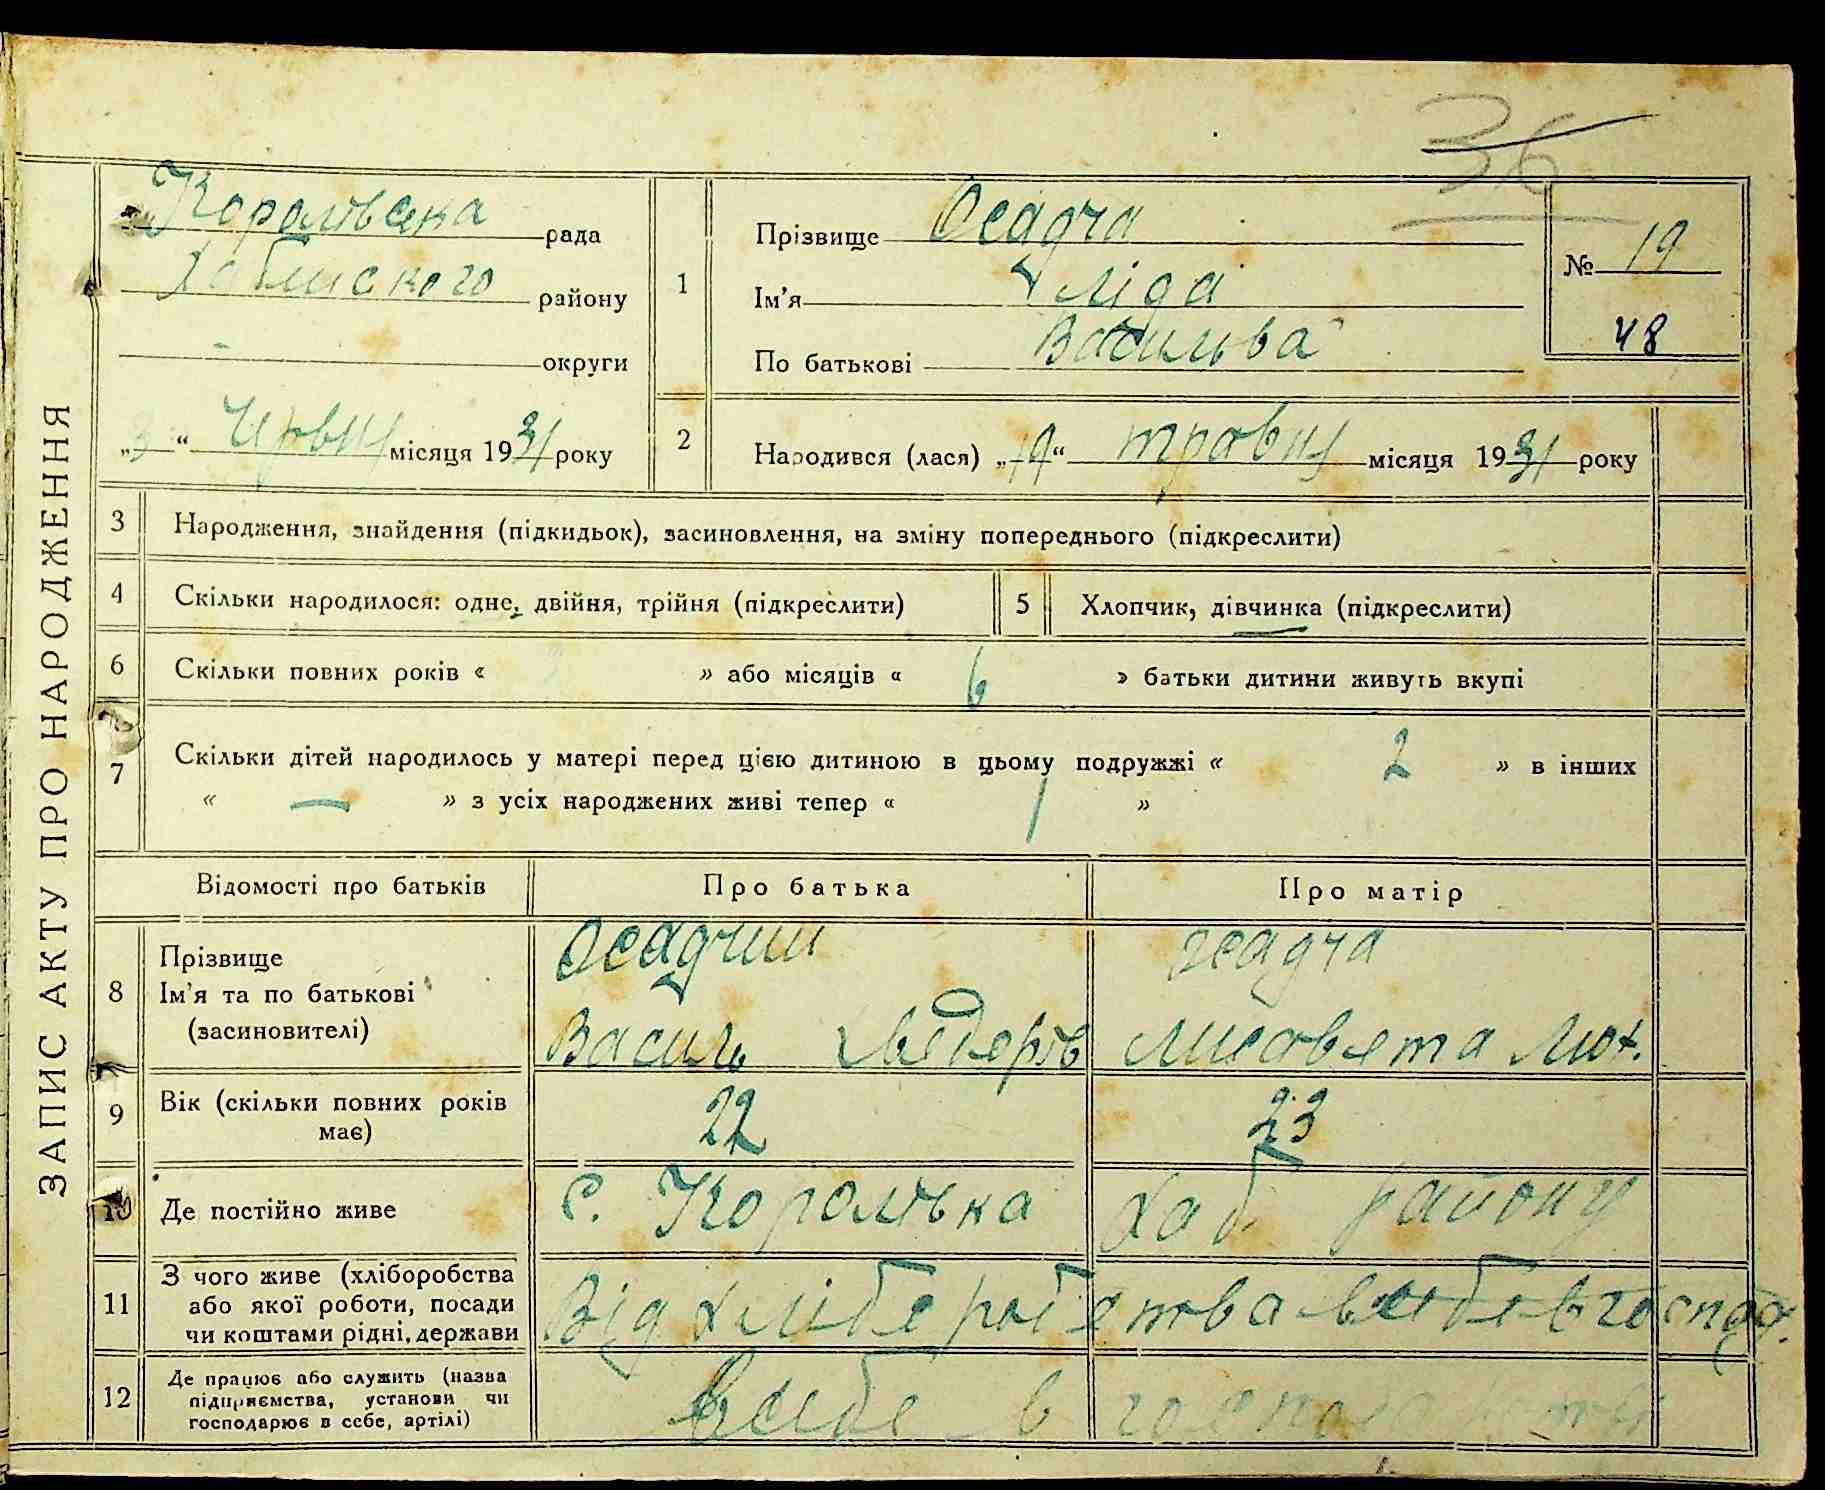 36
ЗАПИС АКТУ ПРО НАРОДЖЕННЯ
Королівська рада
Хабенського району
округи
„3“ Чрвня місяця 1931 року
1
Прізвище Осадча
Ім'я Ліда
По батькові Васильва
№ 19
48
2
Народився (лася) „19“ травня місяця 1931 року
3 Народження, знайдення (підкидьок), засиновлення, на зміну попереднього (підкреслити)
4 Скільки народилося: одне, двійня, трійня (підкреслити)
5 Хлопчик, дівчинка (підкреслити)
6 Скільки повних років « » або місяців « 6 » батьки дитини живуть вкупі
7 Скільки дітей народилось у матері перед цією дитиною в цьому подружжі « 2 » в інших
« — » з усіх народжених живі тепер « 1 »
Відомості про батьків Про батька Про матір
8 Прізвище
Ім'я та по батькові
(засиновителі)
Осадчий
Василь
Осадча
Лисавета
9 Вік (скільки повних років
має)
22 23
10 Де постійно живе с. Королівка Хаб. району
11 З чого живе (хліборобства
або якої роботи, посади
чи коштами рідні, держави
Від хліборобства
12 Де працює або служить (назва
підприємства, установи чи
господарює в себе, артілі)
в себе в